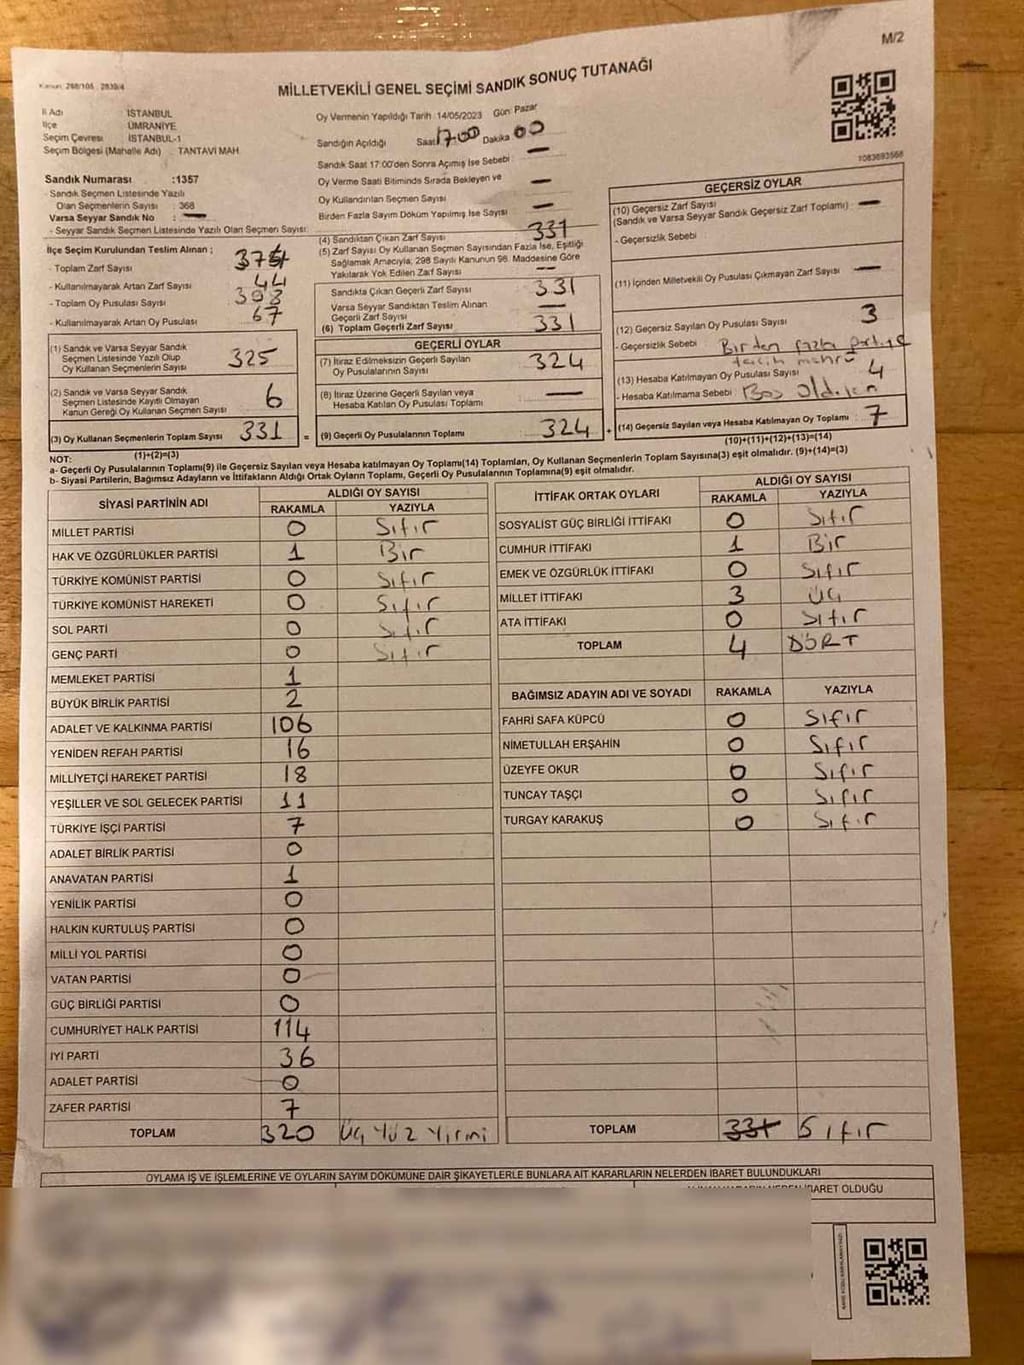 M/2
Kanun: 298/105 , 2839/4
MİLLETVEKİLİ GENEL SEÇİMİ SANDIK SONUÇ TUTANAĞI
İl Adı : İSTANBUL
İlçe : ÜMRANİYE
Seçim Çevresi : İSTANBUL-1
Seçim Bölgesi (Mahalle Adı) : TANTAVİ MAH.
Oy Vermenin Yapıldığı Tarih :14/05/2023 Gün: Pazar
Sandığın Açıldığı Saat 17:00 Dakika 00
Sandık Saat 17:00'den Sonra Açımış İse Sebebi : —
Oy Verme Saati Bitiminde Sırada Bekleyen ve —
Oy Kullandırılan Seçmen Sayısı —
Birden Fazla Sayım Döküm Yapılmış İse Sayısı —
1083693568
Sandık Numarası :1357
- Sandık Seçmen Listesinde Yazılı
Olan Seçmenlerin Sayısı : 368
Varsa Seyyar Sandık No : —
- Seyyar Sandık Seçmen Listesinde Yazılı Olan Seçmen Sayısı:
İlçe Seçim Kurulundan Teslim Alınan ;
- Toplam Zarf Sayısı
- Kullanılmayarak Artan Zarf Sayısı : 44
- Toplam Oy Pusulası Sayısı : 398
- Kullanılmayarak Artan Oy Pusulası : 67
(1) Sandık ve Varsa Seyyar Sandık
Seçmen Listesinde Yazılı Olup
Oy Kullanan Seçmenlerin Sayısı 325
(2) Sandık ve Varsa Seyyar Sandık
Seçmen Listesinde Kayıtlı Olmayan
Kanun Gereği Oy Kullanan Seçmen Sayısı 6
(3) Oy Kullanan Seçmenlerin Toplam Sayısı 331
(1)+(2)=(3)
(4) Sandıktan Çıkan Zarf Sayısı 331
(5) Zarf Sayısı Oy Kullanan Seçmen Sayısından Fazla İse, Eşitliği
Sağlamak Amacıyla; 298 Sayılı Kanunun 98. Maddesine Göre
Yakılarak Yok Edilen Zarf Sayısı —
Sandıkta Çıkan Geçerli Zarf Sayısı 331
Varsa Seyyar Sandıktan Teslim Alınan
Geçerli Zarf Sayısı —
(6) Toplam Geçerli Zarf Sayısı 331
GEÇERLİ OYLAR
(7) İtiraz Edilmeksizin Geçerli Sayılan
Oy Pusulalarının Sayısı 324
(8) İtiraz Üzerine Geçerli Sayılan veya
Hesaba Katılan Oy Pusulası Toplamı —
= (9) Geçerli Oy Pusulalarının Toplamı 324
GEÇERSİZ OYLAR
(10) Geçersiz Zarf Sayısı
(Sandık ve Varsa Seyyar Sandık Geçersiz Zarf Toplamı) : —
- Geçersizlik Sebebi :
(11) İçinden Milletvekili Oy Pusulası Çıkmayan Zarf Sayısı —
(12) Geçersiz Sayılan Oy Pusulası Sayısı : 3
- Geçersizlik Sebebi : Birden fazla partiye
tercih mührü
(13) Hesaba Katılmayan Oy Pusulası Sayısı : 4
- Hesaba Katılmama Sebebi : Boş Olduğundan
+ (14) Geçersiz Sayılan veya Hesaba Katılmayan Oy Toplamı : 7
(10)+(11)+(12)+(13)=(14)
NOT:
a- Geçerli Oy Pusulalarının Toplamı(9) ile Geçersiz Sayılan veya Hesaba katılmayan Oy Toplamı(14) Toplamları, Oy Kullanan Seçmenlerin Toplam Sayısına(3) eşit olmalıdır. (9)+(14)=(3)
b- Siyasi Partilerin, Bağımsız Adayların ve İttifakların Aldığı Ortak Oyların Toplamı, Geçerli Oy Pusulalarının Toplamına(9) eşit olmalıdır.
SİYASİ PARTİNİN ADI ALDIĞI OY SAYISI
RAKAMLA YAZIYLA
MİLLET PARTİSİ 0 Sıfır
HAK VE ÖZGÜRLÜKLER PARTİSİ 1 Bir
TÜRKİYE KOMÜNİST PARTİSİ 0 Sıfır
TÜRKİYE KOMÜNİST HAREKETİ 0 Sıfır
SOL PARTİ 0 Sıfır
GENÇ PARTİ 0 Sıfır
MEMLEKET PARTİSİ 1
BÜYÜK BİRLİK PARTİSİ 2
ADALET VE KALKINMA PARTİSİ 106
YENİDEN REFAH PARTİSİ 16
MİLLİYETÇİ HAREKET PARTİSİ 18
YEŞİLLER VE SOL GELECEK PARTİSİ 11
TÜRKİYE İŞÇİ PARTİSİ 7
ADALET BİRLİK PARTİSİ 0
ANAVATAN PARTİSİ 1
YENİLİK PARTİSİ 0
HALKIN KURTULUŞ PARTİSİ 0
MİLLİ YOL PARTİSİ 0
VATAN PARTİSİ 0
GÜÇ BİRLİĞİ PARTİSİ 0
CUMHURİYET HALK PARTİSİ 114
İYİ PARTİ 36
ADALET PARTİSİ 0
ZAFER PARTİSİ 7
TOPLAM 320 Üç Yüz Yirmi
İTTİFAK ORTAK OYLARI ALDIĞI OY SAYISI
RAKAMLA YAZIYLA
SOSYALİST GÜÇ BİRLİĞİ İTTİFAKI 0 Sıfır
CUMHUR İTTİFAKI 1 Bir
EMEK VE ÖZGÜRLÜK İTTİFAKI 0 Sıfır
MİLLET İTTİFAKI 3 Üç
ATA İTTİFAKI 0 Sıfır
TOPLAM 4 DÖRT
BAĞIMSIZ ADAYIN ADI VE SOYADI RAKAMLA YAZIYLA
FAHRİ SAFA KÜPCÜ 0 Sıfır
NİMETULLAH ERŞAHİN 0 Sıfır
ÜZEYFE OKUR 0 Sıfır
TUNCAY TAŞÇI 0 Sıfır
TURGAY KARAKUŞ 0 Sıfır
TOPLAM 331 Sıfır
OYLAMA İŞ VE İŞLEMLERİNE VE OYLARIN SAYIM DÖKÜMÜNE DAİR ŞİKAYETLERLE BUNLARA AİT KARARLARIN NELERDEN İBARET BULUNDUKLARI
İBARET OLDUĞU